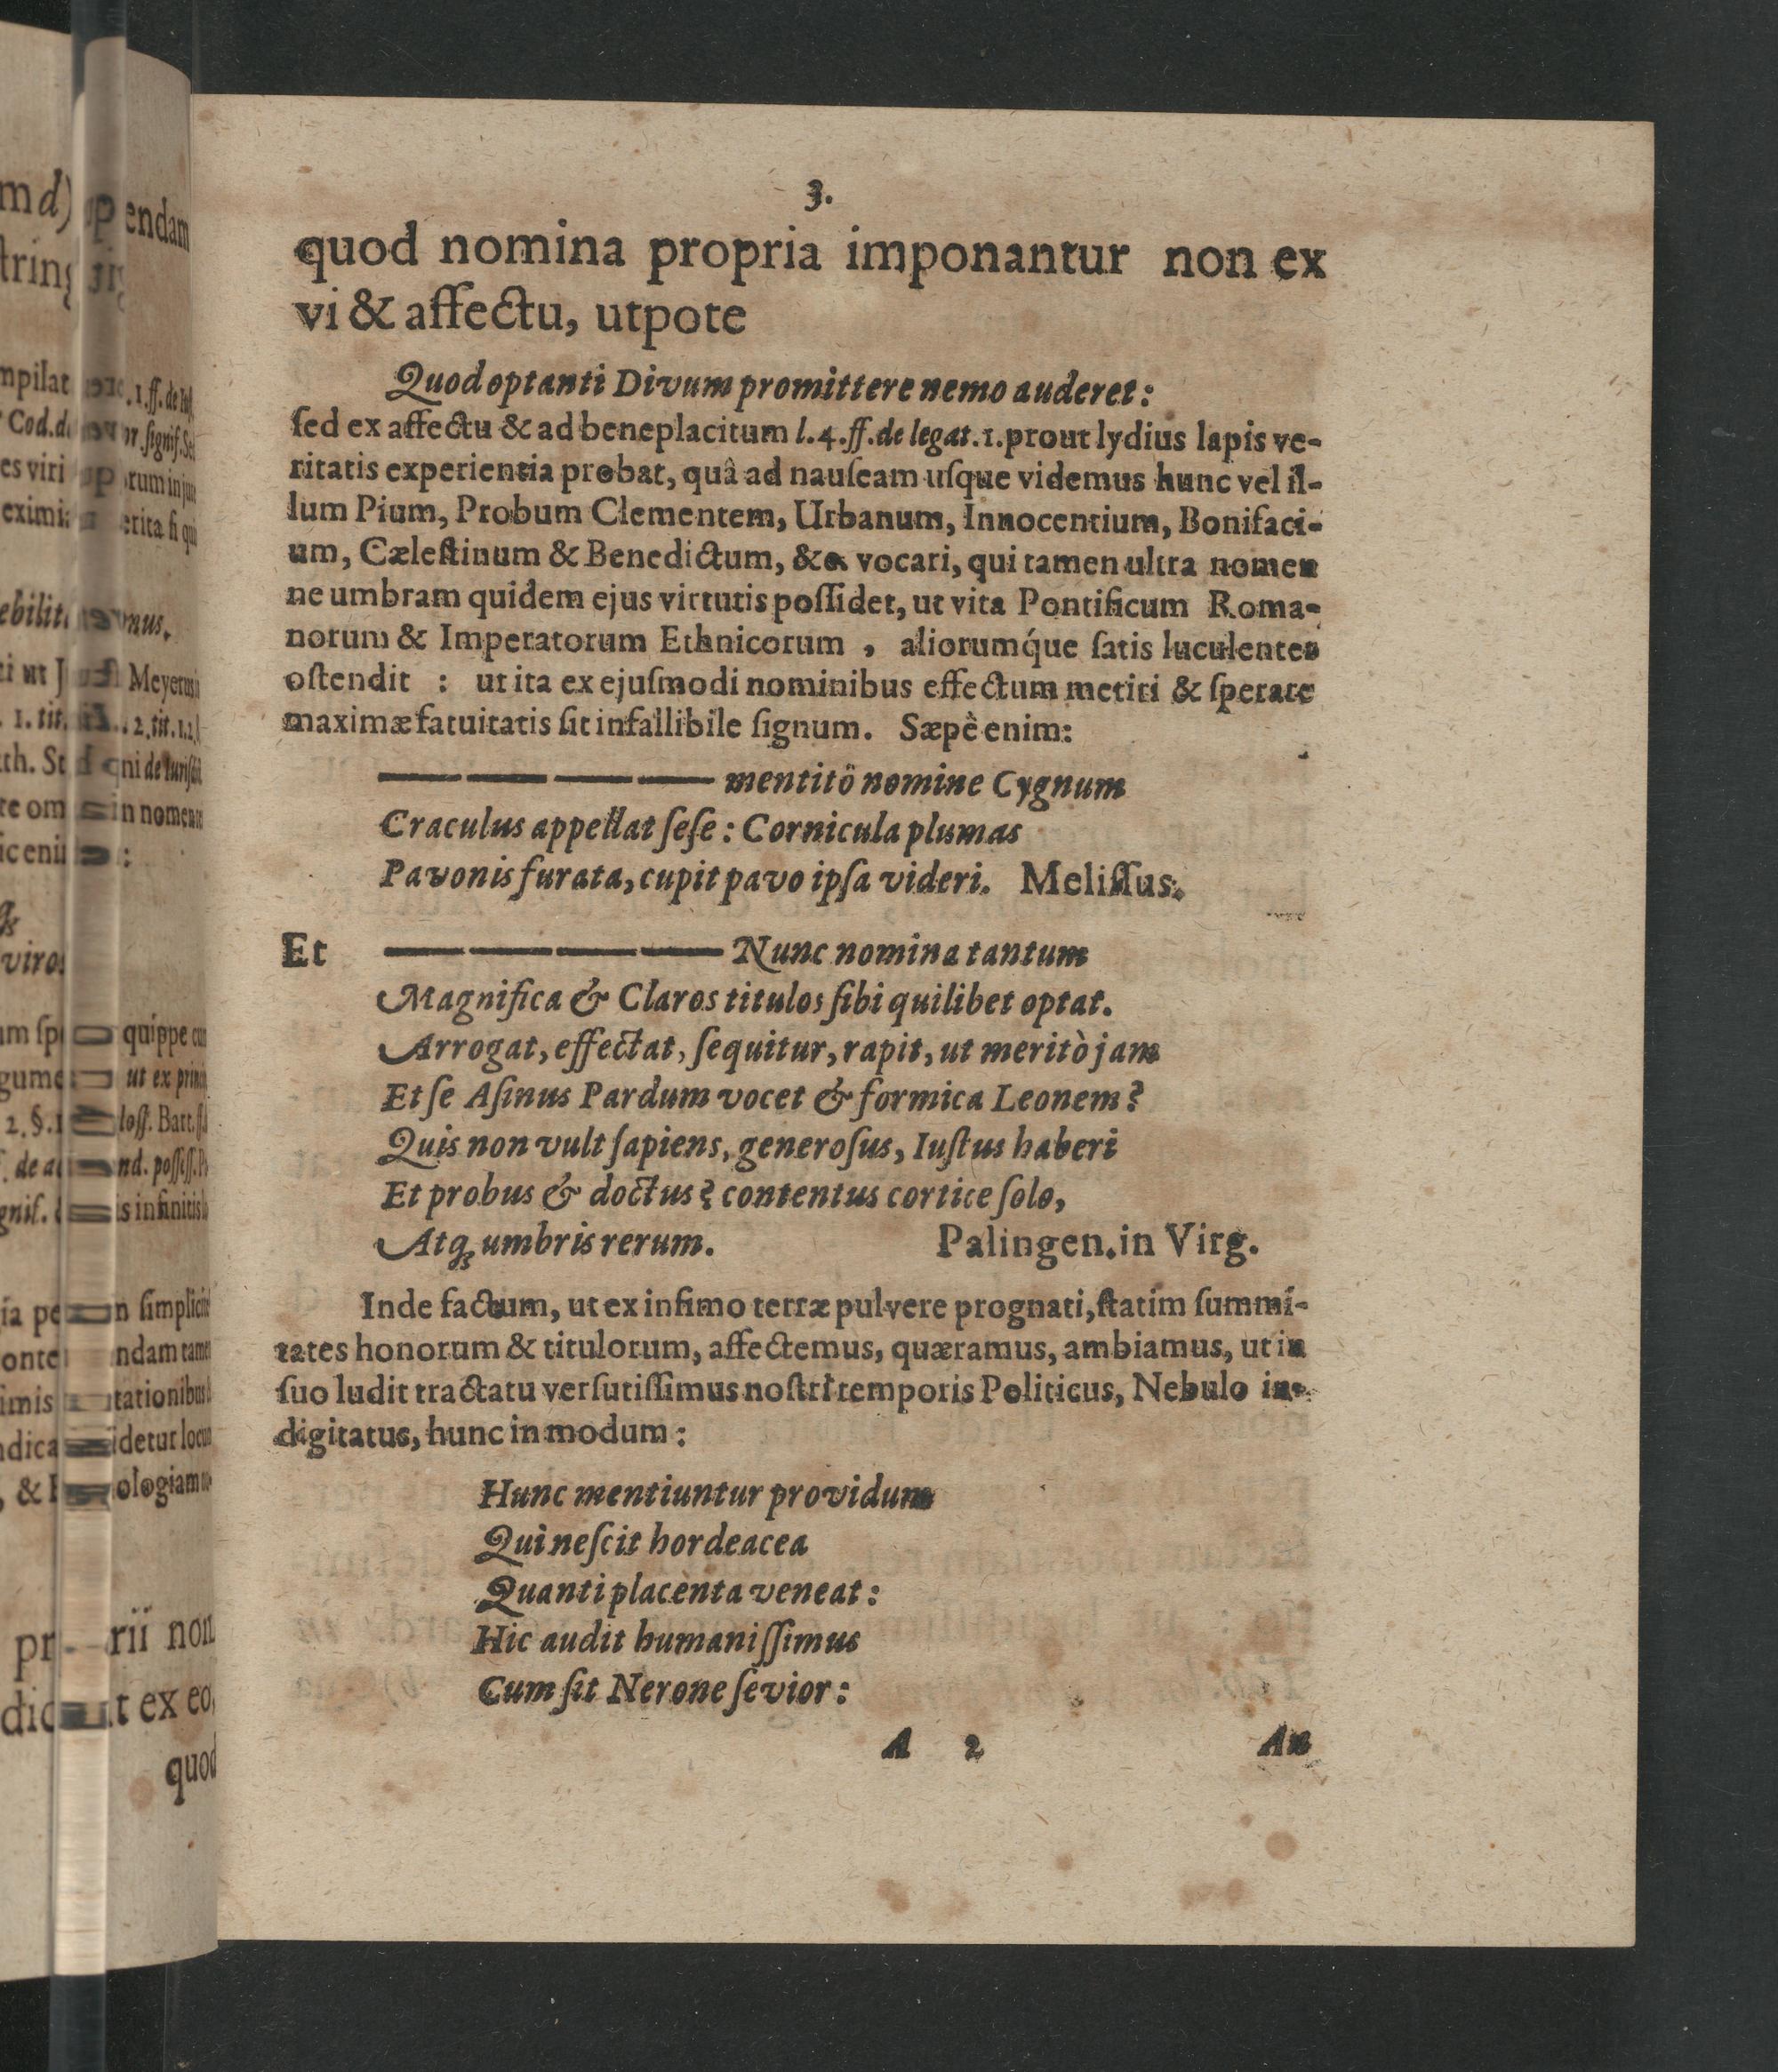 3.
quod nomina propria imponantur non ex
vi & affectu, utpote
Quod optanti Divum promittere nemo auderet:
ſed ex affectu & ad beneplacitum l. 4. ff. de legat. 1. prout lydius lapis ve-
ritatis experientia probat, quâ ad nauſeam uſque videmus hunc vel il-
lum Pium, Probum Clementem, Urbanum, Innocentium, Bonifaci-
um, Cæleſtinum & Benedictum, &c. vocari, qui tamen ultra nomen
ne umbram quidem ejus virtutis poſſidet, ut vita Pontificum Roma-
norum & Imperatorum Ethnicorum , aliorumq́ue ſatis luculenter
oſtendit : ut ita ex ejuſmodi nominibus effectum metiri & ſperare
maximæ fatuitatis ſit infallibile ſignum. Sæpè enim:
— — — — mentitö nomine Cygnum
Craculus appellat ſeſe: Cornicula plumas
Pavonis furata, cupit pavo ipſa videri. Meliſſus.
Et — — — — Nunc nomina tantum
Magnifica & Claros titulos ſibi quilibet optat.
Arrogat, effectat, ſequitur, rapit, ut meritò jam
Et ſe Aſinus Pardum vocet & formica Leonem?
Quis non vult ſapiens, generoſus, Iuſtus haberi
Et probus & doctus? contentus cortice ſolo,
Atq; umbris rerum. Palingen. in Virg.
Inde factum, ut ex infimo terræ pulvere prognati, ſtatim ſummi-
tates honorum & titulorum, affectemus, quæramus, ambiamus, ut in
ſuo ludit tractatu verſutiſſimus noſtri temporis Politicus, Nebulo in-
digitatus, hunc in modum:
Hunc mentiuntur providum
Qui neſcit hordeacea
Quanti placenta veneat:
Hic audit humaniſſimus
Cum ſit Nerone ſevior:
A 2 An